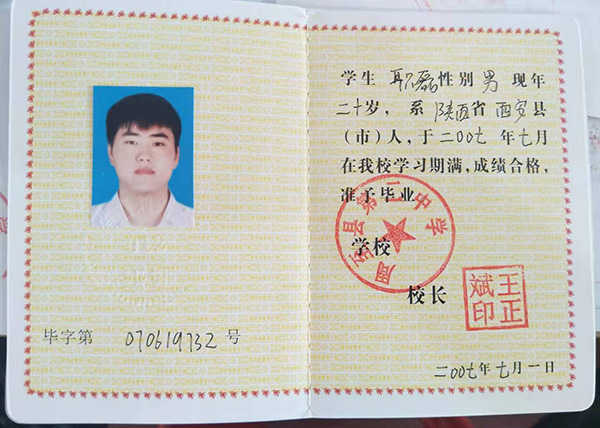 毕字第 070619732 号
学生 耿磊 性别 男 现年
二十岁，系 陕西省 西安县
（市）人，于二00七 年七月
在我校学习期满，成绩合格，
准予毕业
周至县第二中学
学校
校长
王正斌印
二00七年七月一日